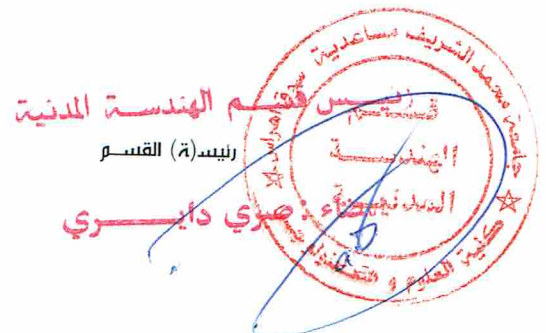 رئيس قسم الهندسة المدنية
رئيسـ(ة) القسم
إمضاء : صري دايري
جامعة محمد الشريف مساعدية سوق أهراس
قسم
الهندسة
المدنية
كلية العلوم و التكنولوجيا